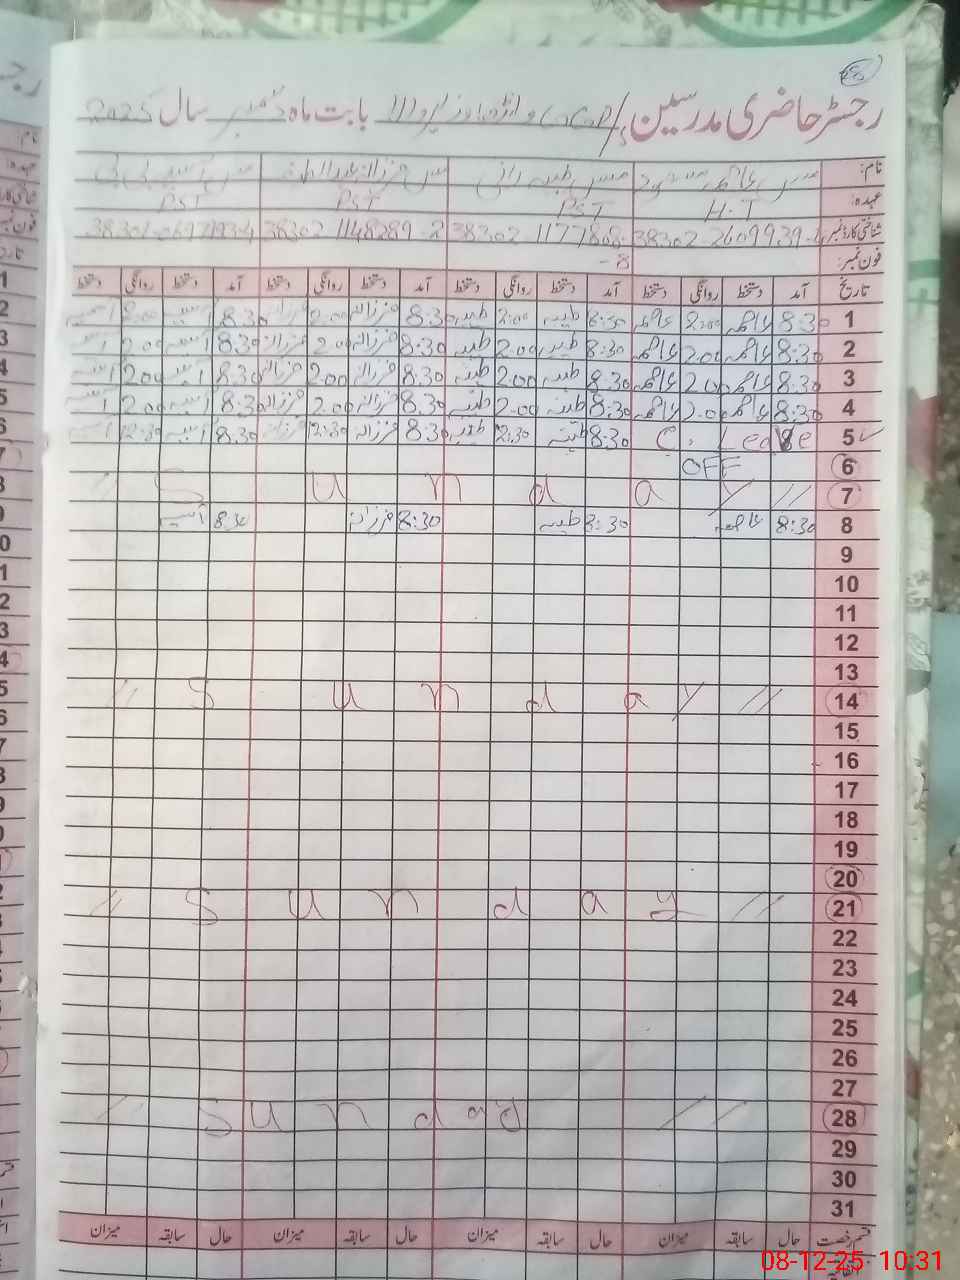 رجسٹر حاضری مدرسین بابت ماہ دسمبر سال 2025
نام: مس عاصمہ مس طیبہ رانی مس فرزانہ مس آسیہ بی بی
عہدہ: H.T PST PST PST
شناختی کارڈ نمبر 38302-2609939- 38302-1177868- 38302-1148289-2
فون نمبر: -8
تاریخ آمد دستخط روانگی دستخط آمد دستخط روانگی دستخط آمد دستخط روانگی دستخط آمد دستخط روانگی دستخط
1 8:30 عاصمہ 2:00 عاصمہ 8:30 طیبہ 2:00 طیبہ 8:30 فرزانہ 2:00 فرزانہ 8:30 آسیہ 2:00 آسیہ
2 8:30 عاصمہ 2:00 عاصمہ 8:30 طیبہ 2:00 طیبہ 8:30 فرزانہ 2:00 فرزانہ 8:30 آسیہ 2:00 آسیہ
3 8:30 عاصمہ 2:00 عاصمہ 8:30 طیبہ 2:00 طیبہ 8:30 فرزانہ 2:00 فرزانہ 8:30 آسیہ 2:00 آسیہ
4 8:30 عاصمہ 2:00 عاصمہ 8:30 طیبہ 2:00 طیبہ 8:30 فرزانہ 2:00 فرزانہ 8:30 آسیہ 2:00 آسیہ
5 C. Leave 8:30 طیبہ 12:30 طیبہ 8:30 فرزانہ 12:30 فرزانہ 8:30 آسیہ 12:30 آسیہ
6 OFF
7 // Sunday //
8 8:30 عاصمہ 8:30 طیبہ 8:30 فرزانہ 8:30 آسیہ
9
10
11
12
13
14 // Sunday //
15
16
17
18
19
20
21 // Sunday //
22
23
24
25
26
27
28 // Sunday //
29
30
31
قسم رخصت حال سابقہ میزان حال سابقہ میزان حال سابقہ میزان حال سابقہ میزان
اتفاقیہ
08-12-25 10:31